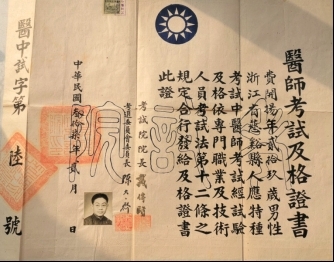 醫師考試及格證書
費開揚年貳拾玖歲男性
浙江省慈谿縣人應特種
考試中醫師考試經試驗
及格依專門職業及技術
人員考試法第十二條之
規定合行發給及格證書
此證
考試院院長
考選委員會委員長 陳大齊
中華民國叁拾柒年貳月 日
醫中試字第陸號